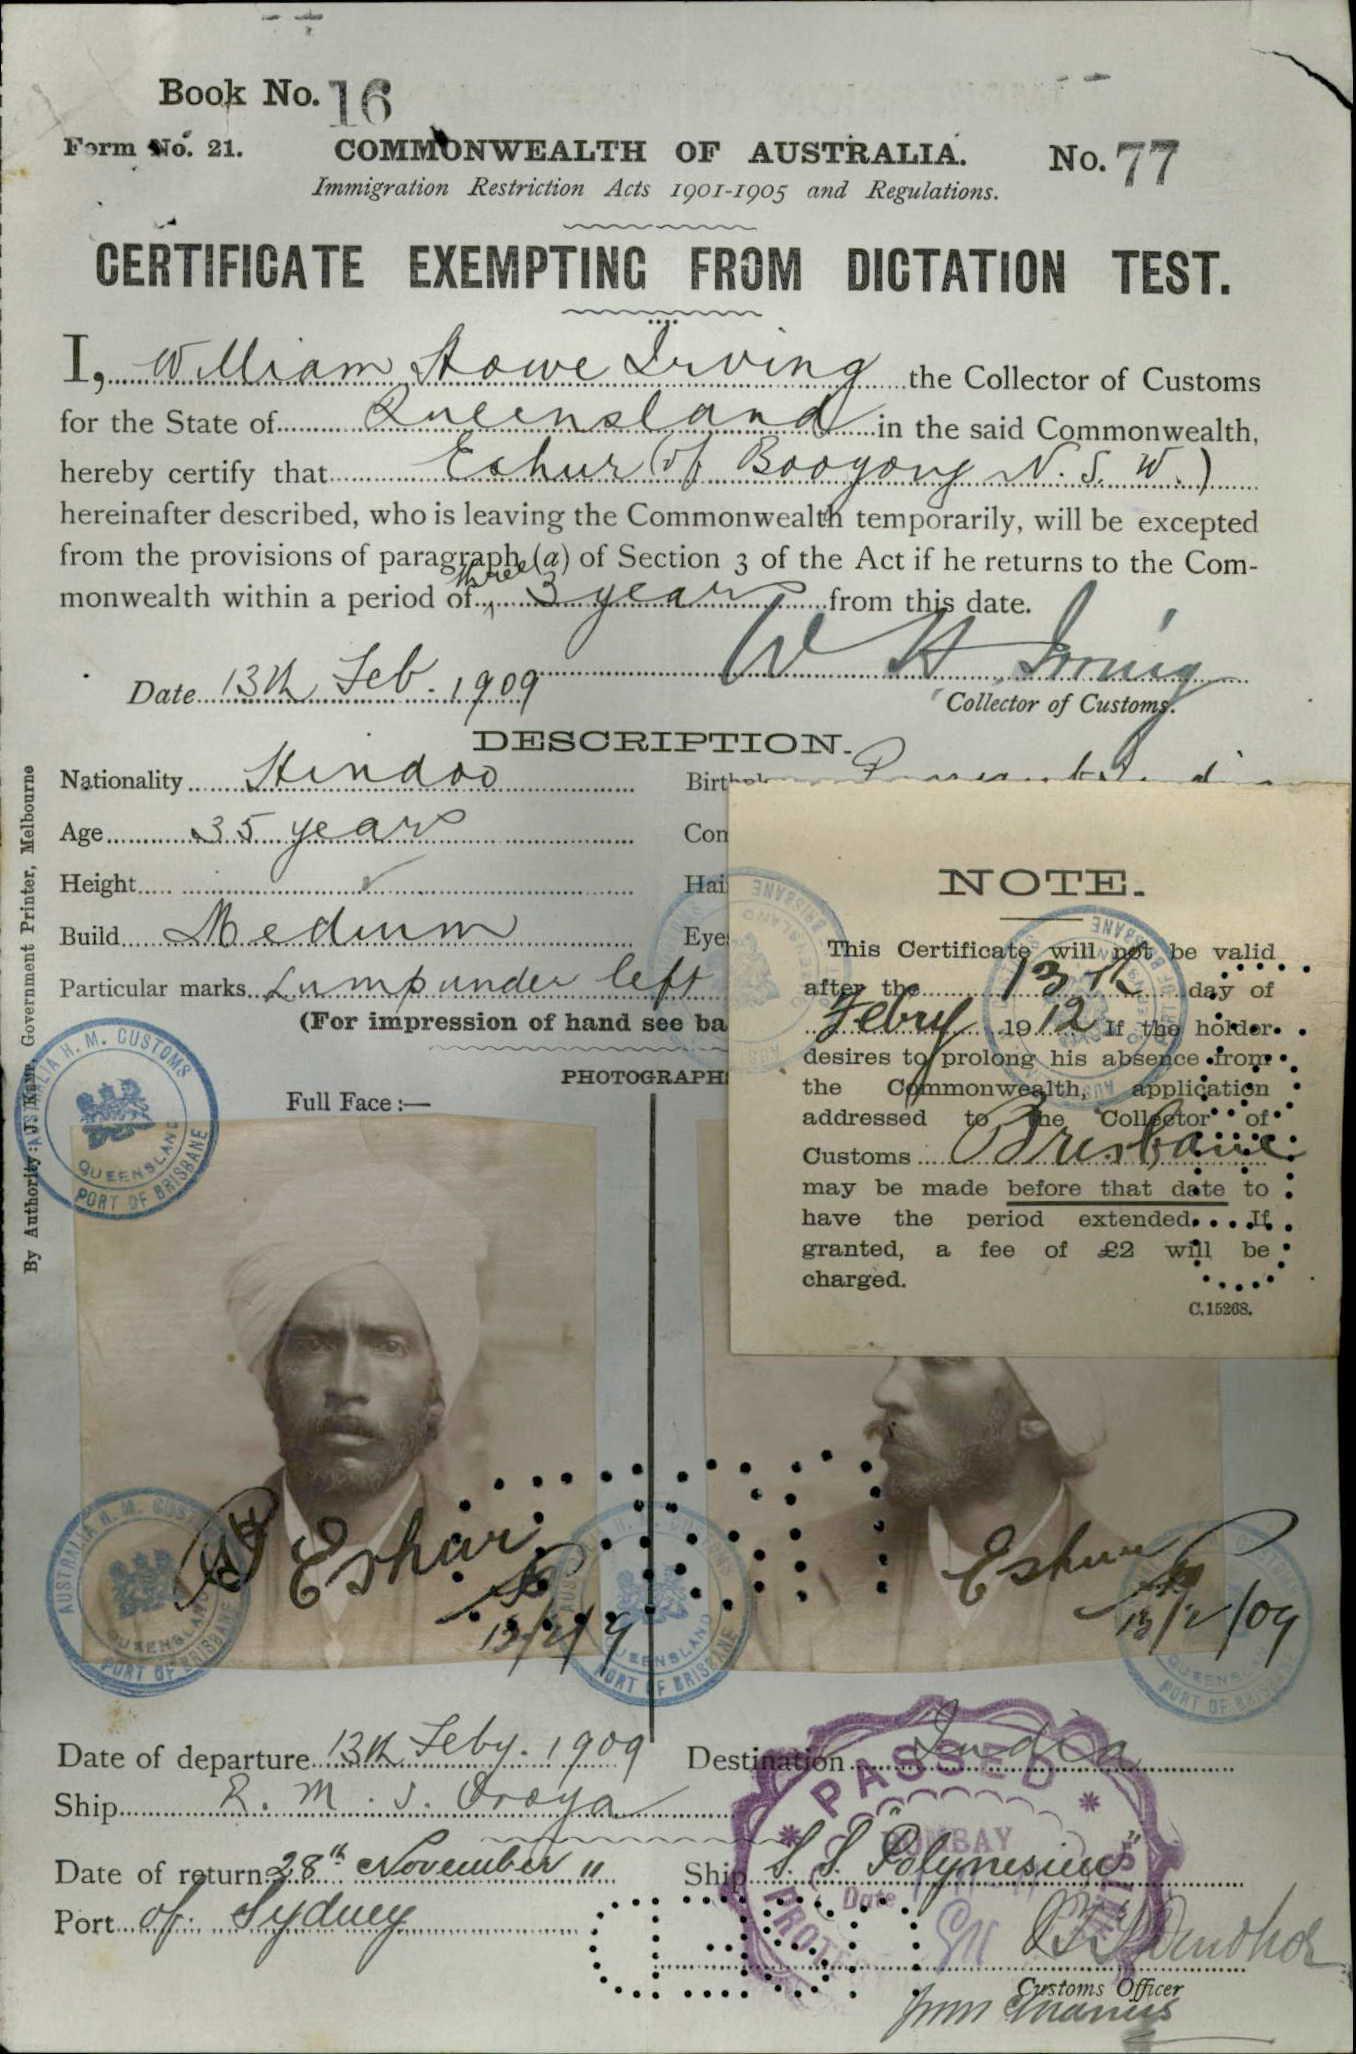 Book No. 16
Form No. 21.
COMMONWEALTH OF AUSTRALIA.
No. 77
Immigration Restriction Acts 1901-1905 and Regulations.
CERTIFICATE EXEMPTING FROM DICTATION TEST.
I, William Howe Irving the Collector of Customs
for the State of Queensland in the said Commonwealth,
hereby certify that Eshur (of Booyong N. S. W.)
hereinafter described, who is leaving the Commonwealth temporarily, will be excepted
from the provisions of paragraph (a) of Section 3 of the Act if he returns to the Com-
monwealth within a period of three 3 years from this date.
W H Irving
Date 13th Feb. 1909
Collector of Customs.
DESCRIPTION.
Nationality Hindoo
Age 35 years
Height
Build Medium
Particular marks Lump under left
(For impression of hand see ba
PHOTOGRAPH
Full Face:—
By Authority: J. Kemp, Government Printer, Melbourne
NOTE.
This Certificate will not be valid
after the 13th day of
Febry 1912 If the holder
desires to prolong his absence from
the Commonwealth, application
addressed to the Collector of
Customs Brisbane
may be made before that date to
have the period extended. If
granted, a fee of £2 will be
charged.
C.15268.
AUSTRALIA H. M. CUSTOMS
QUEENSLAND
PORT OF BRISBANE
Eshur
13/2/9
Eshur
13/2/09
AUSTRALIA H. M. CUSTOMS
QUEENSLAND
PORT OF BRISBANE
Date of departure 13th Feby. 1909
Destination India
Ship R. M. S. Oroya
PASSED
BOMBAY
Date
Date of return 28th November "
Ship S. S. "Polynesien"
Port of Sydney
Customs Officer